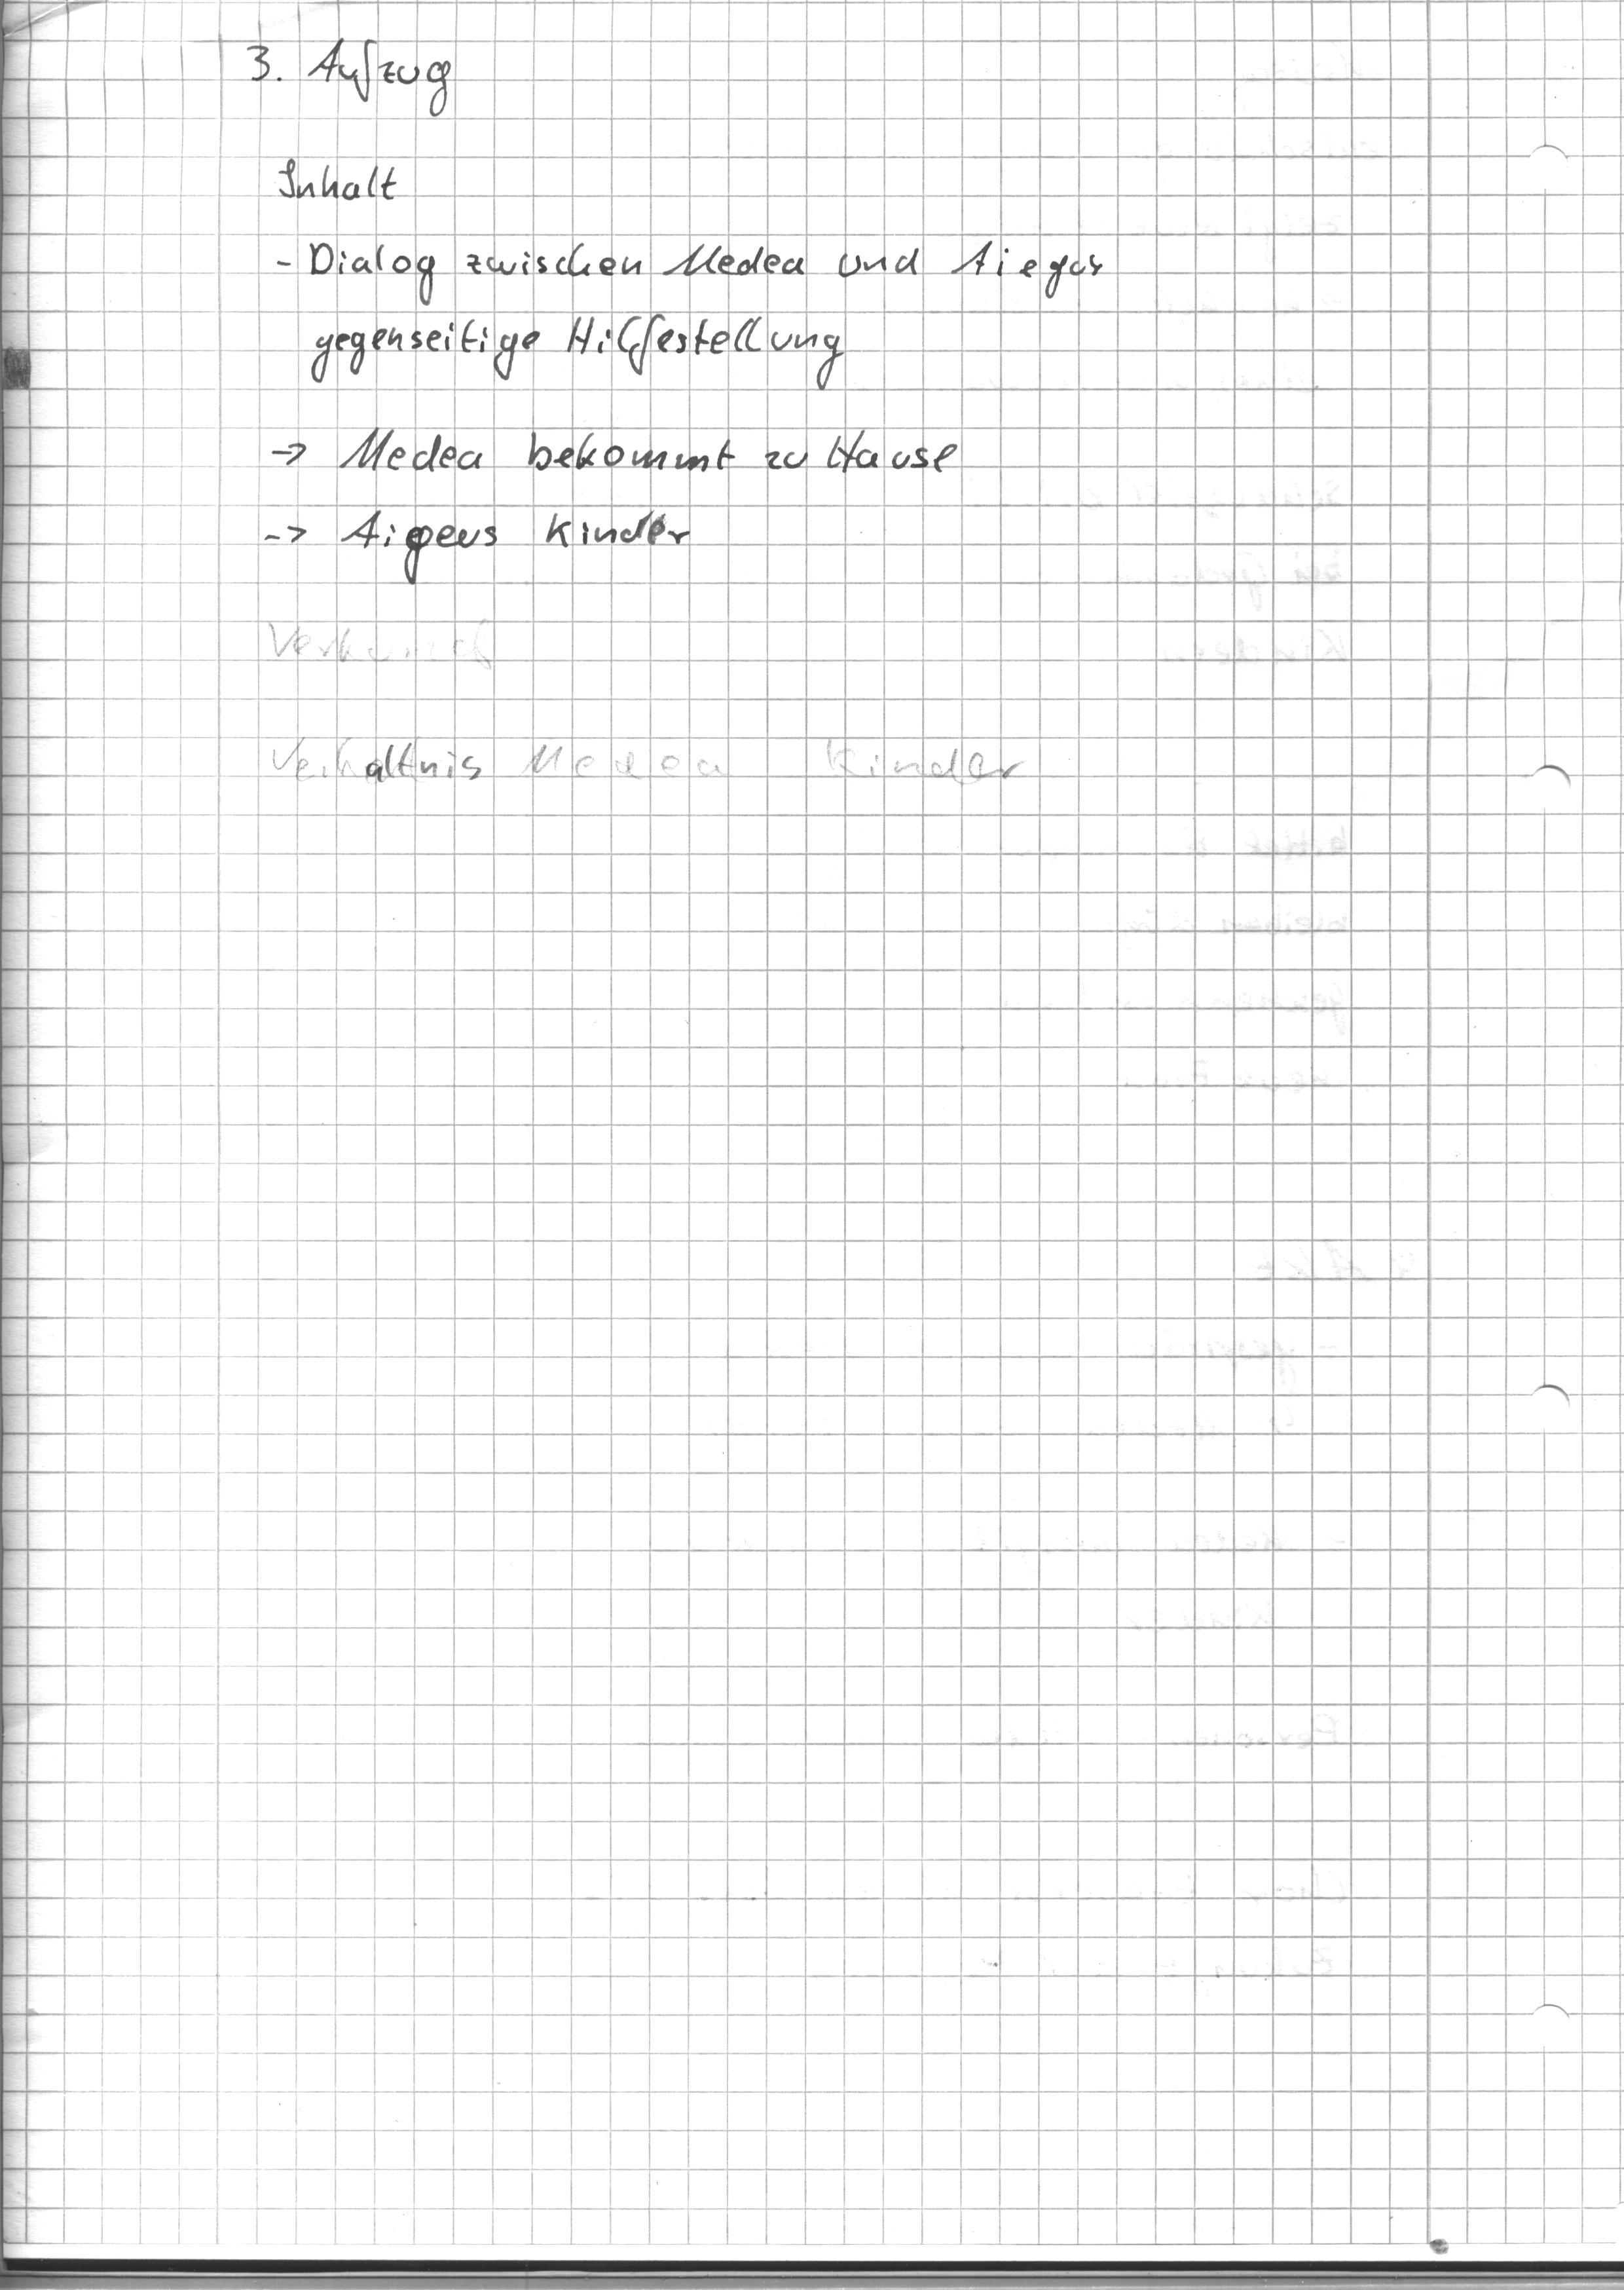 3. Aufzug
Inhalt
- Dialog zwischen Medea und Aiegus
gegenseitige Hilfestellung
-> Medea bekommt zu Hause
-> Aigeus Kinder
Verhältnis Medea Kinder